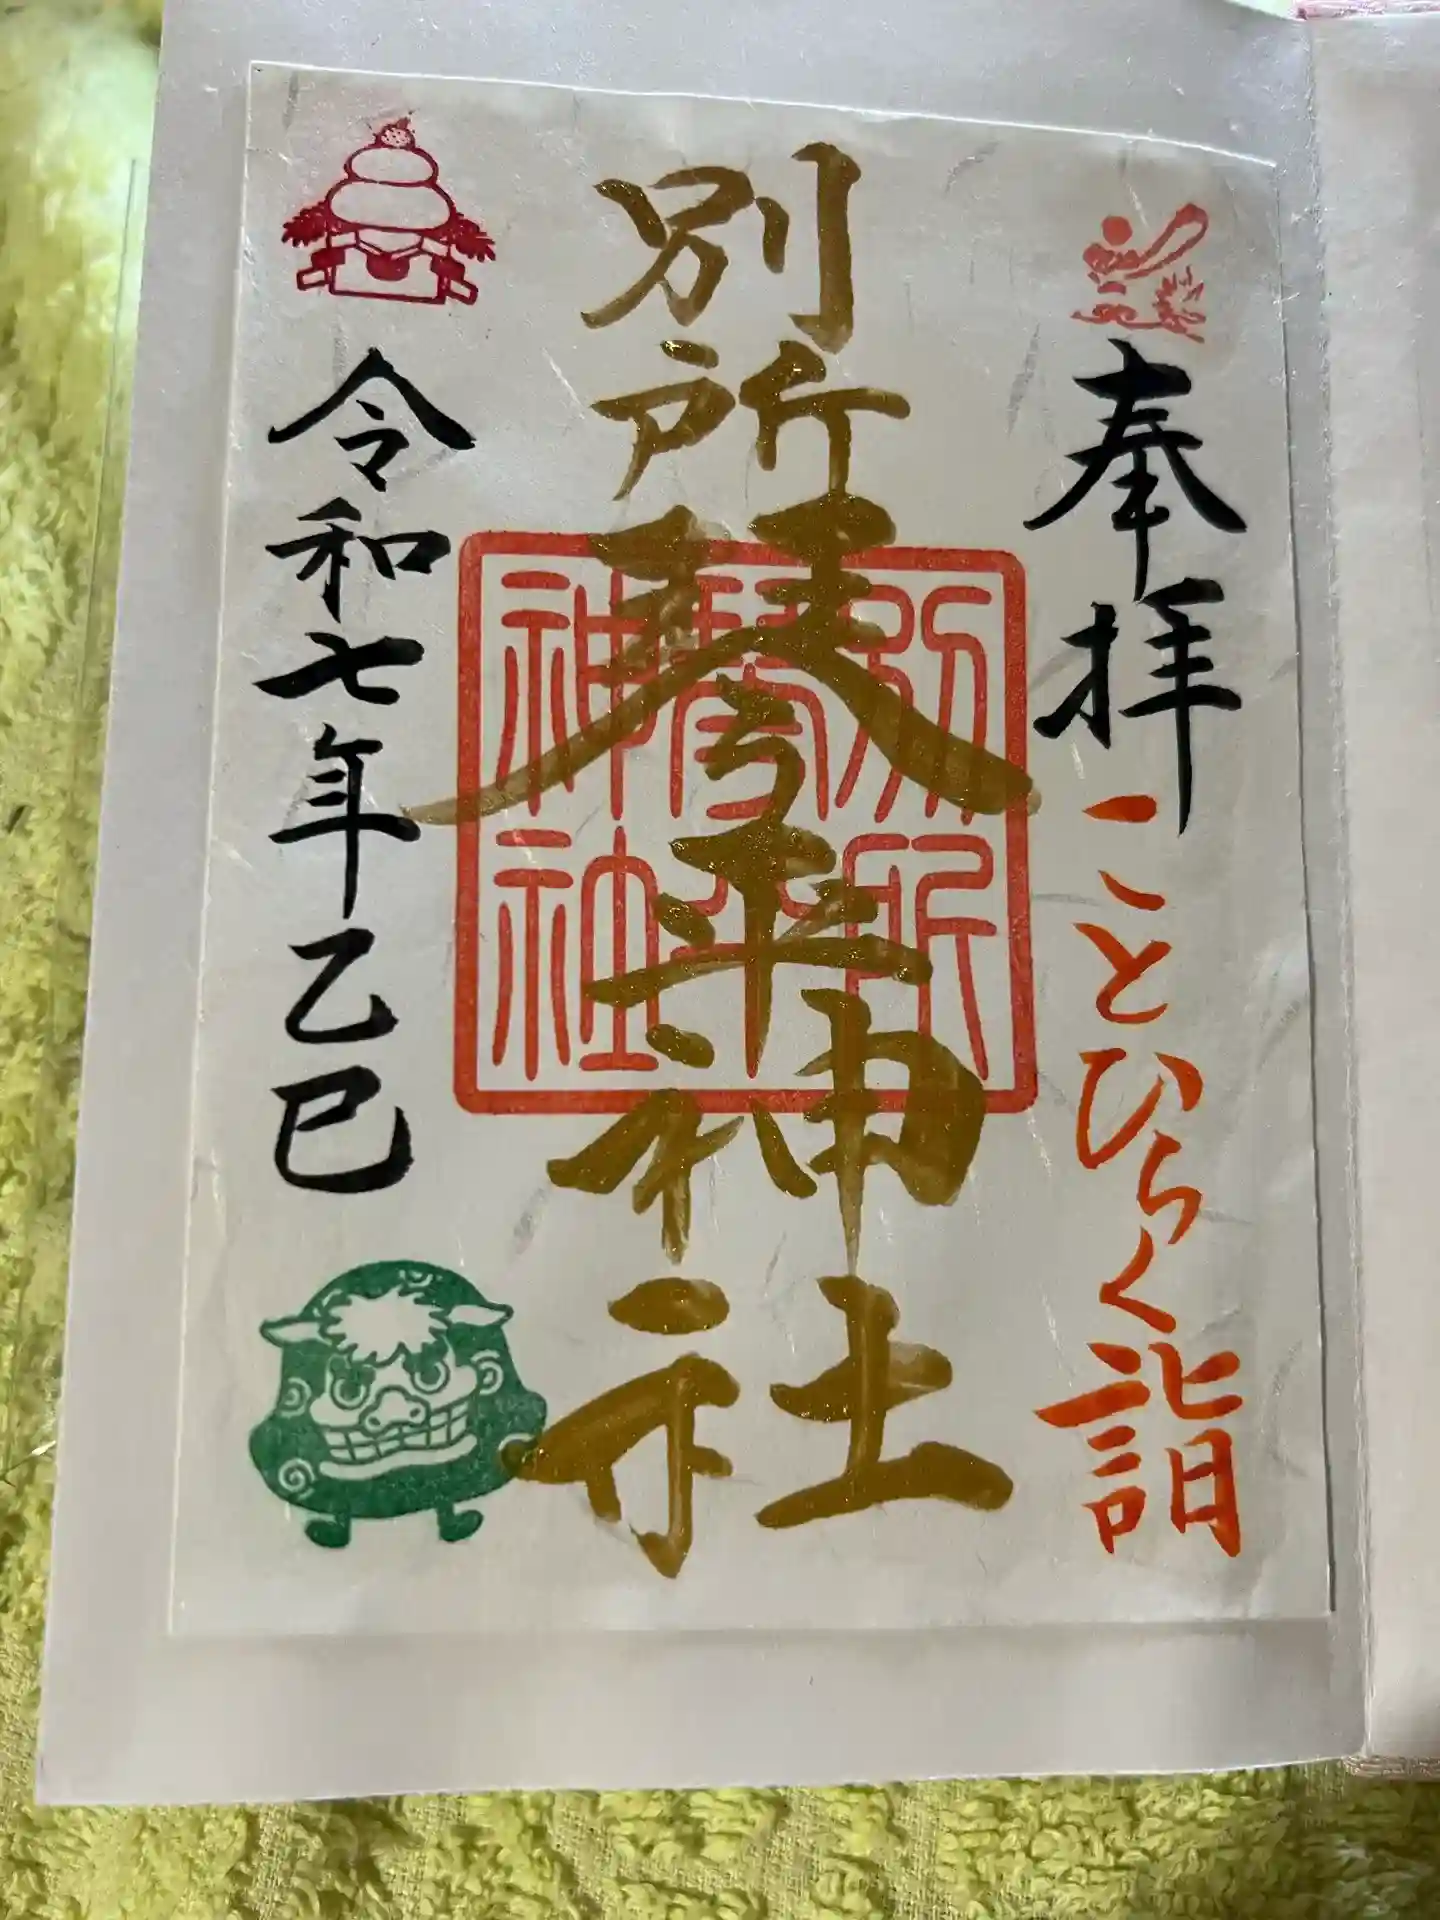 奉拝
ことひらく詣
別所琴平神社
別所
琴平
神社
令和七年乙巳